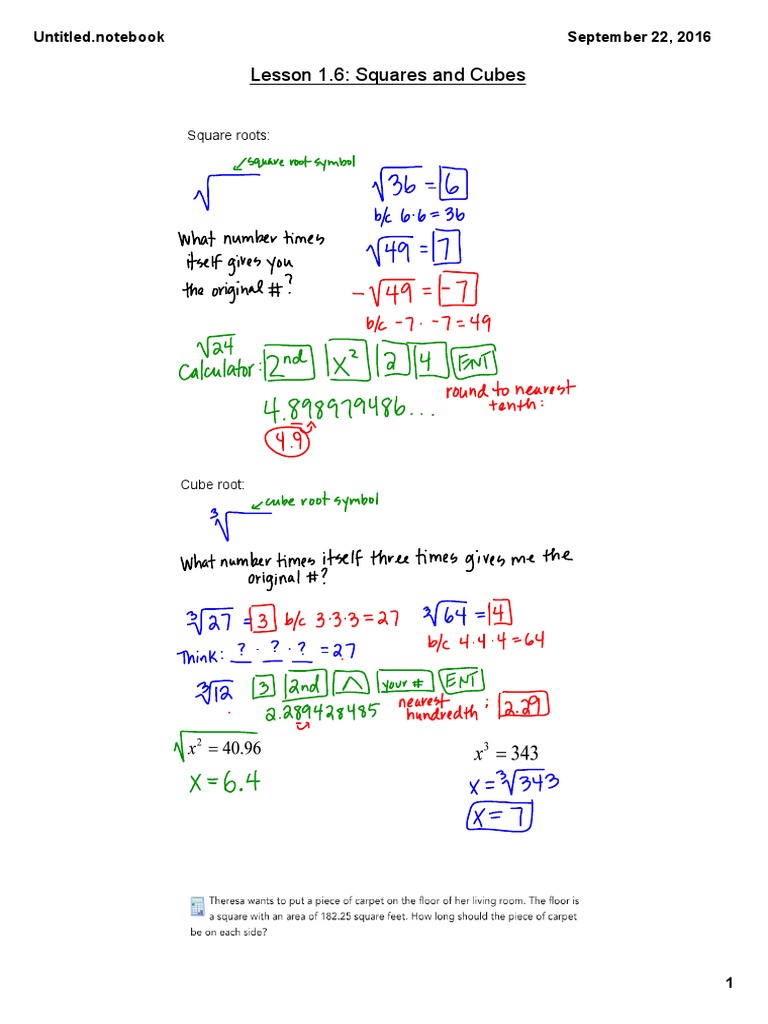 Untitled.notebook September 22, 2016
Lesson 1.6: Squares and Cubes
Square roots:
square root symbol
√
What number times
itself gives you
the original #?
√36 = 6
b/c 6·6 = 36
√49 = 7
-√49 = -7
b/c -7 · -7 = 49
√24
Calculator: 2nd x² 2 4 ENT
4.898979486...
round to nearest
tenth:
4.9
Cube root:
cube root symbol
³√
What number times itself three times gives me the
original #?
³√27 = 3 b/c 3·3·3 = 27
Think: ? · ? · ? = 27
³√64 = 4
b/c 4·4·4 = 64
³√12 3 2nd ^ your # ENT
2.289428485 nearest
hundredth: 2.29
√x² = 40.96
x = 6.4
x³ = 343
x = ³√343
x = 7
Theresa wants to put a piece of carpet on the floor of her living room. The floor is
a square with an area of 182.25 square feet. How long should the piece of carpet
be on each side?
1